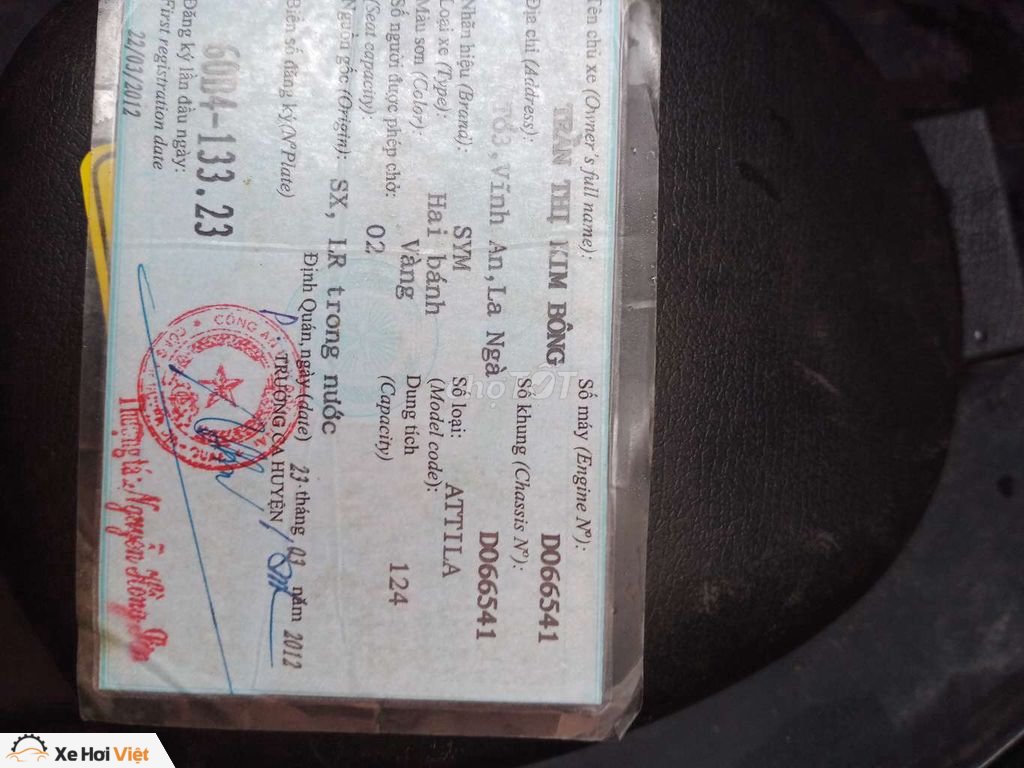 Tên chủ xe (Owner's full name):
TRẦN THỊ KIM BÔNG
Số máy (Engine Nº):
D066541
Địa chỉ (Address):
Số khung (Chassis Nº):
D066541
Tổ3,Vĩnh An,La Ngà
Nhãn hiệu (Brand):
SYM
Số loại:
(Model code):
ATTILA
Loại xe (Type):
Hai bánh
Màu sơn (Color):
Vàng
Dung tích
(Capacity)
124
Số người được phép chở:
(Seat capacity)
02
Nguồn gốc (Origin):
SX, LR trong nước
Biển số đăng ký(NºPlate)
60D4-133.23
Định Quán, ngày (date) 23 tháng 03 năm 2012
TRƯỞNG CA HUYỆN
CÔNG AN
Đăng ký lần đầu ngày:
First registration date
22/03/2012
Thượng tá: Nguyễn Hồng
chợTỐT
Xe Hơi Việt